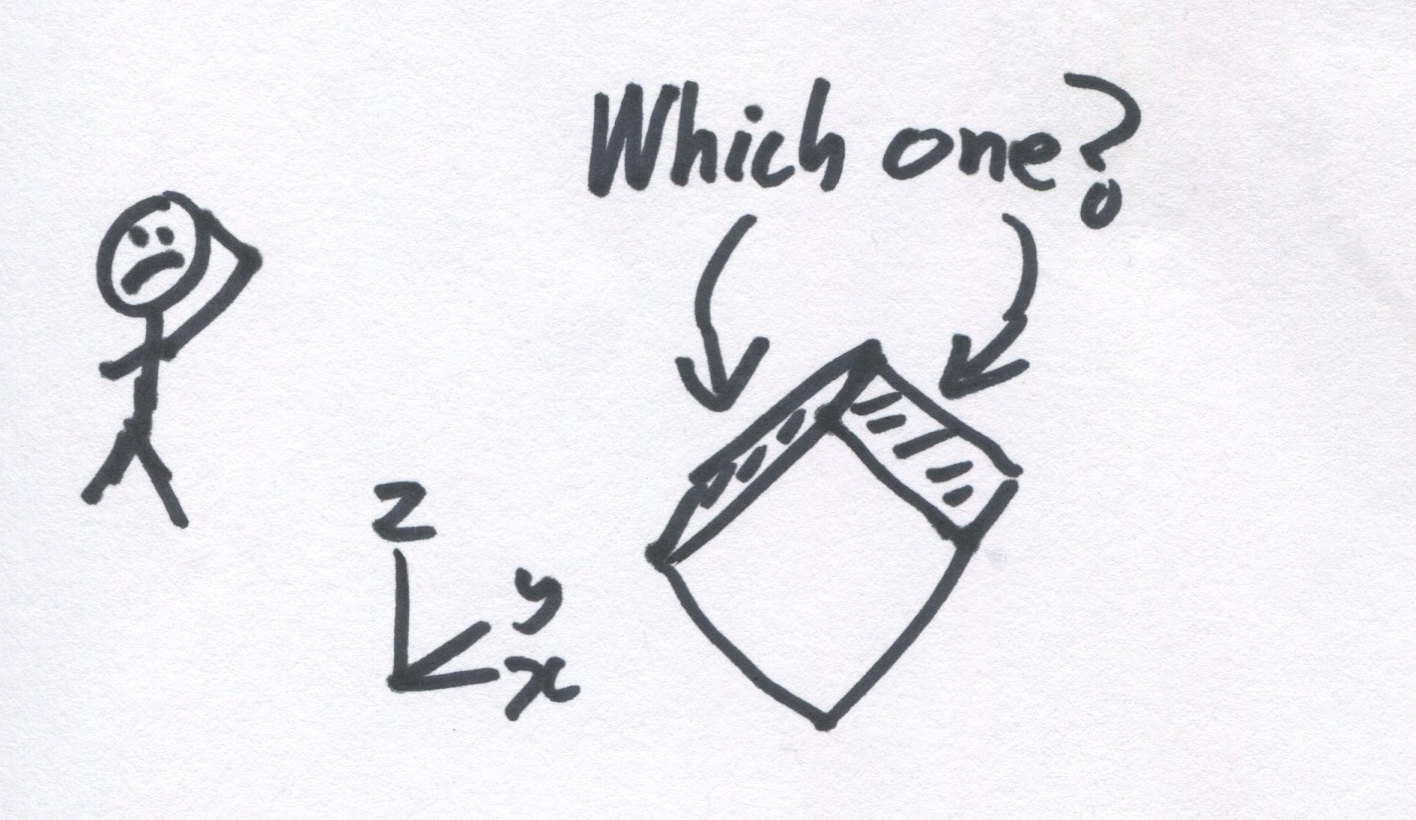 Which one?
z
y
x